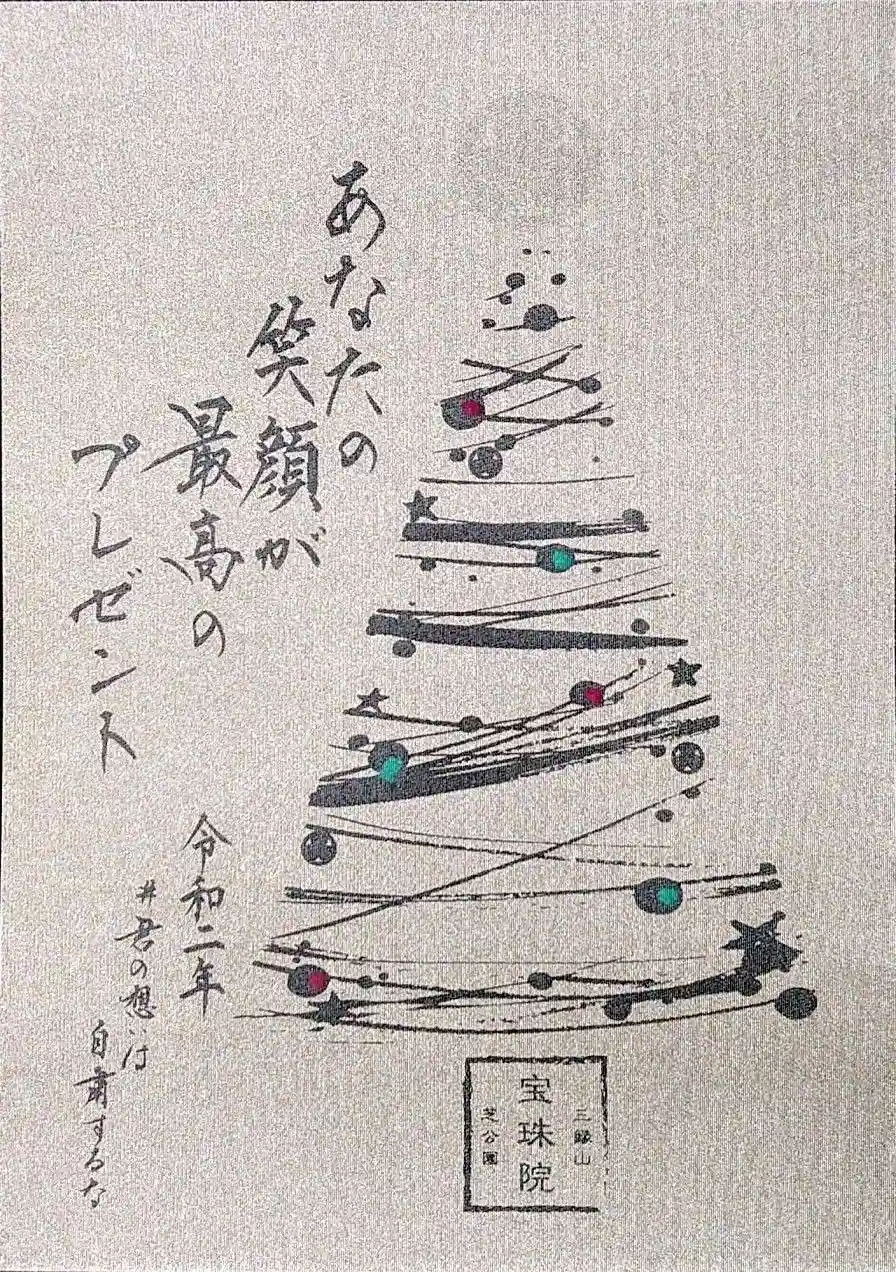 あなたの
笑顔が
最高の
プレゼント
令和二年
#君の想いは
自粛するな
三縁山
宝珠院
芝公園